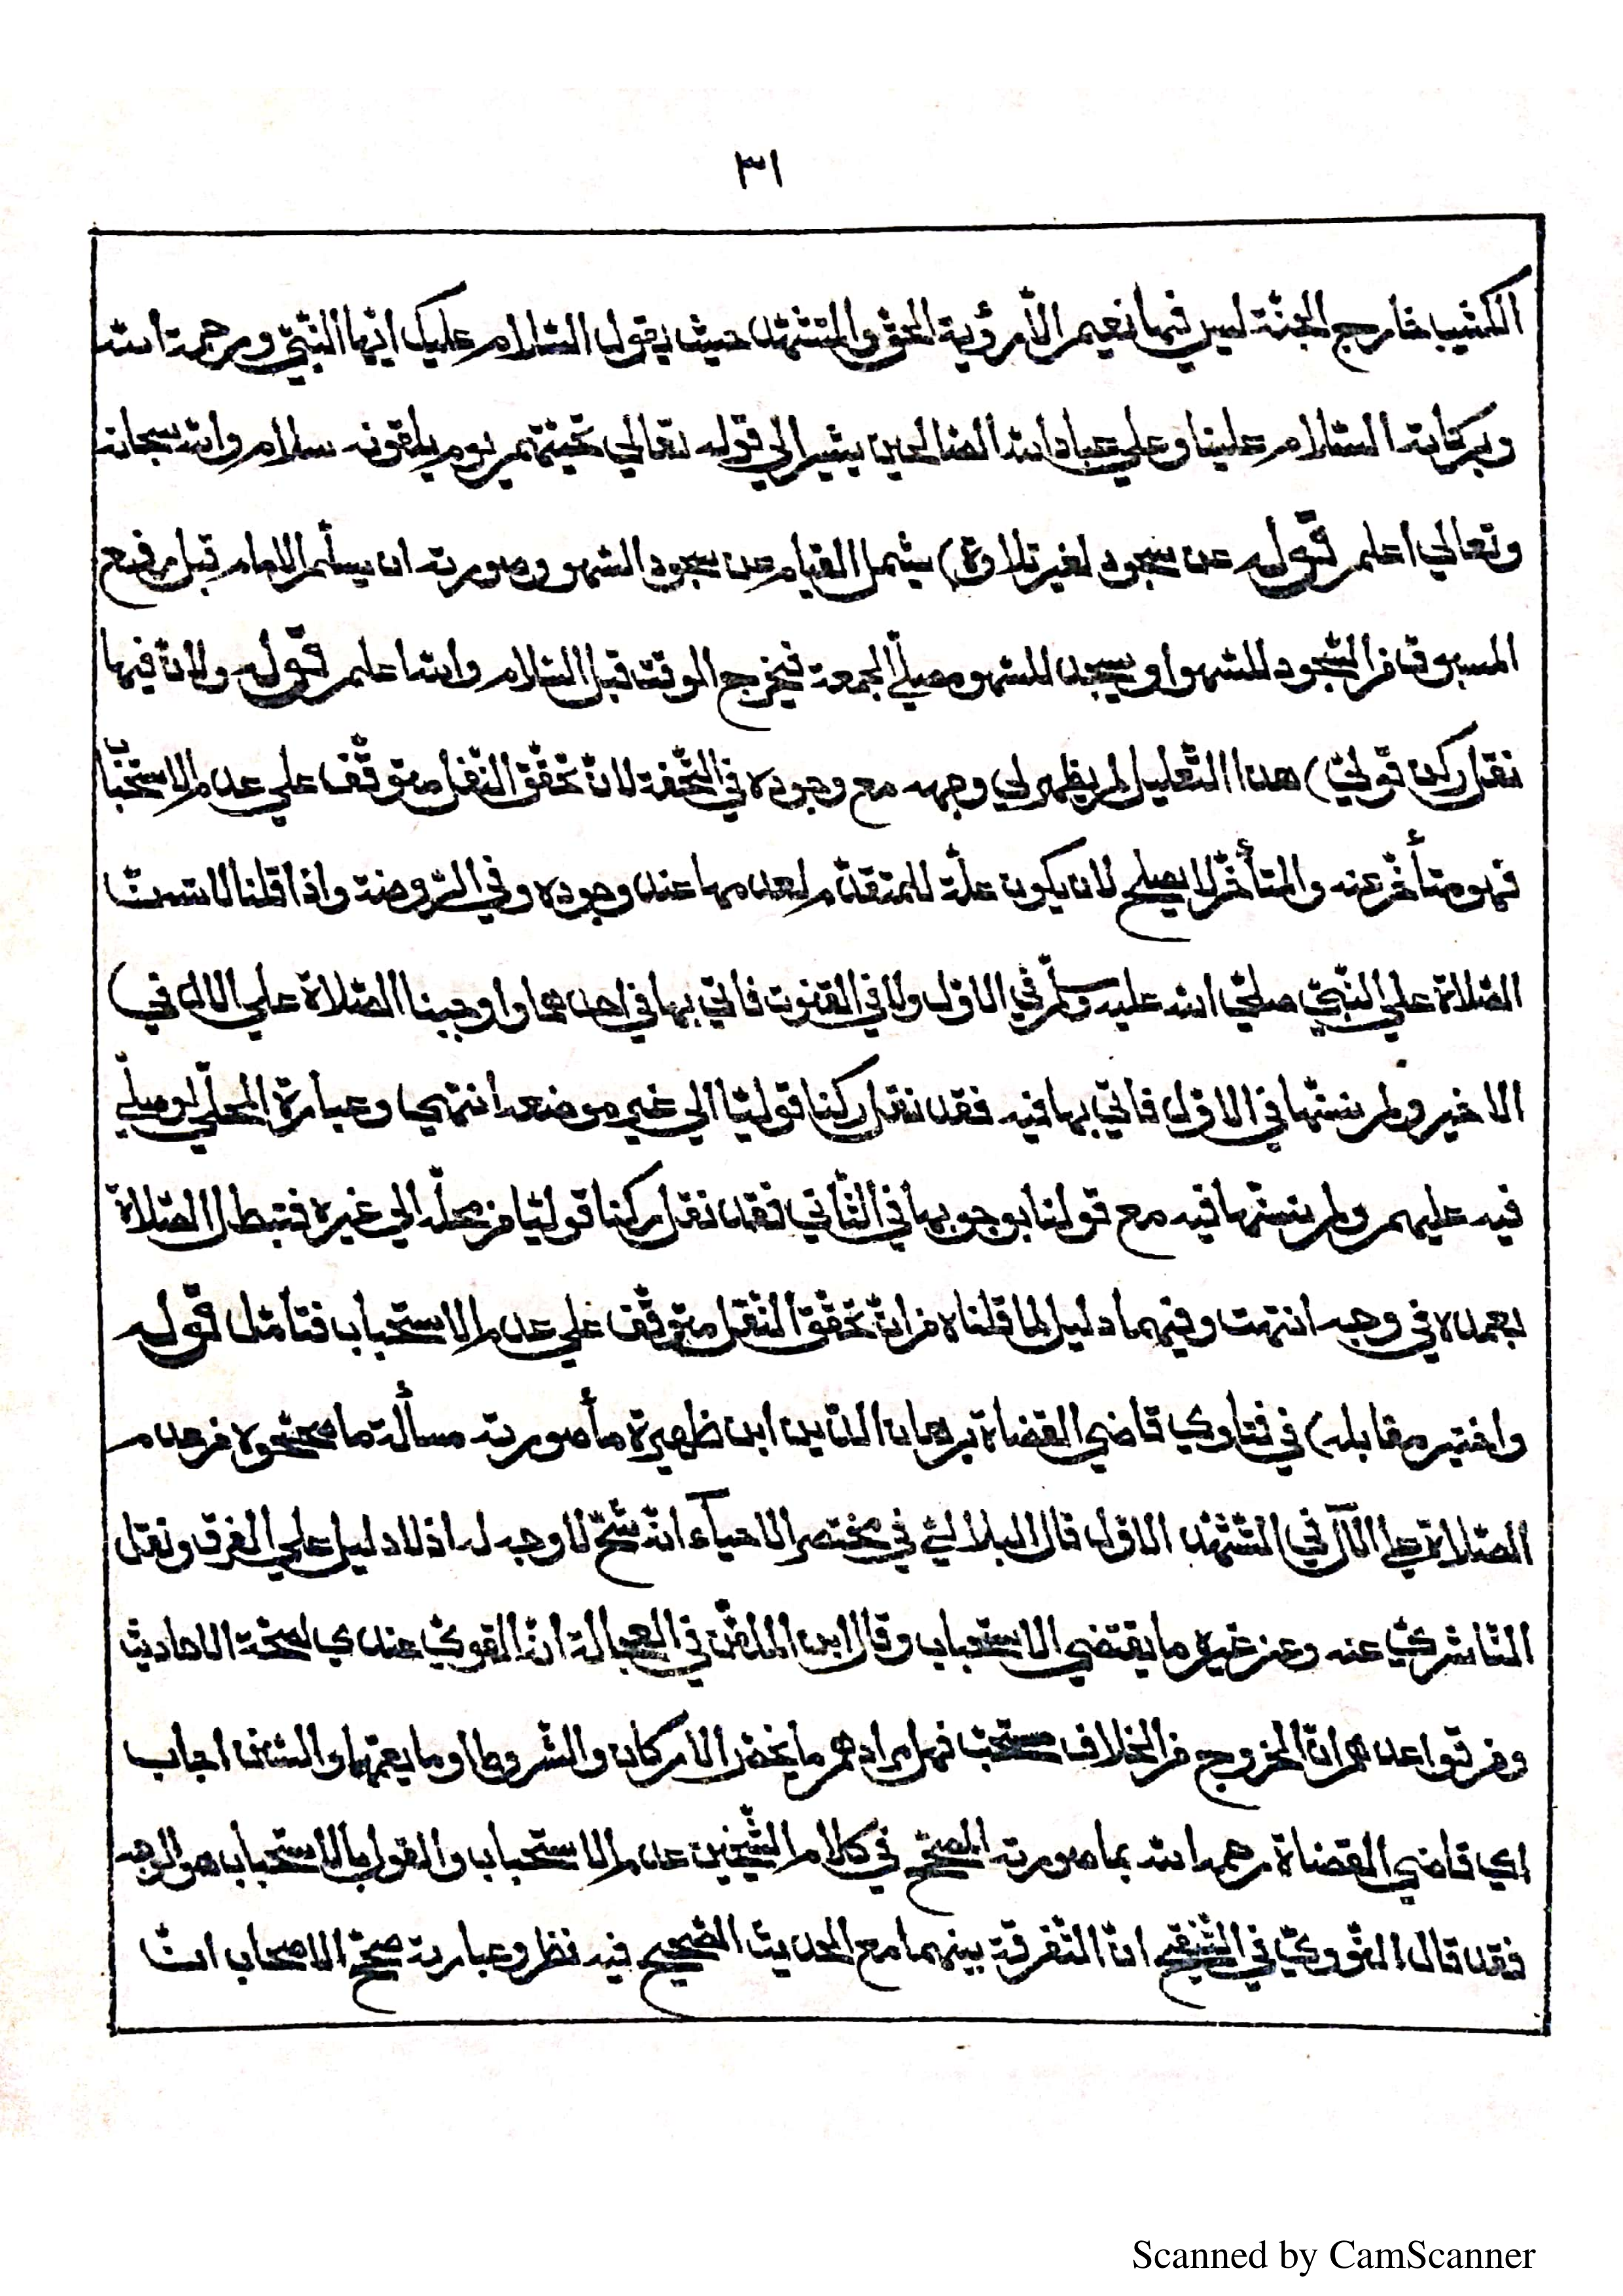 ٣١
الكثيب خارج الجنّة ليس فيها نعيم الّا رؤية الحقّ والتشهّد حيث يقول السّلام عليك ايّها النّبيّ ورحمة الله
وبركاته السّلام علينا وعلي عباد الله الصّالحين يشير الي قوله تعالي تحيّتهم يوم يلقونه سلام والله سبحانه
وتعالي اعلم قوله عن سجود لغير تلاوة) يشمل القيام عن سجود السّهو وصورته ان يسلّم الامام قبل رفع
المسبوق من السّجود للسّهو او يسجد للسّهو مصلّي الجمعة فيخرج الوقت قبل السّلام والله اعلم قوله ولانّ فيها
نقل ركن قوليّ) هذا التّعليل لم يظهر لي وجهه مع وجوده في التّحفة لانّ تحقّق النّقل متوقّف علي عدم الاستحبّا
فهو متأخّر عنه والمتأخّر لا يصلح لان يكون علّة للمتقدّم لعدمها عند وجوده وفي الرّوضة واذا قلنا لا تسنّ
الصّلاة علي النّبيّ صلّي الله عليه وسلّم في الاوّل ولا في القنوت فاتي بها في احدهما او اوجبنا الصّلاة علي الال في)
الاخير ولم نسنّها في الاوّل فاتي بها فيه فقد نقل ركنا قوليّا الي غير موضعه انتهي وعبارة المحلّي لو صلّي
فيه عليهم ولم نسنّها فيه مع قولنا بوجوبها في الثّاني فقد نقل ركنا قوليّا من محلّه الي غيره فتبطل الصّلاة
بعمده في وجه انتهت وفيهما دليل لما قلناه من انّ تحقّق النّقل متوقّف علي عدم الاستحباب فتأمّل قوله
واختير مقابله) في فتاوي قاضي القضاة برهان الدّين ابن ظهيرة ما صورته مسألة ما صحّحوه من عدم
الصّلاة علي الآل في التّشهّد الاوّل قال البلاليّ في مختصر الاحيآء انّه شحّ لا وجه له اذ لا دليل علي الفرق ونقل
النّاشريّ عنه وعن غيره ما يقتضي الاستحباب وقال ابن الملقّن في العجالة انّه القويّ عندي لصحّة الاحاديث
وفرّقوا عدهم انّ الخروج من الخلاف مستحبّ فهل مرادهم ما يخصّ الاركان والشّروط او ما يعمّها والسّنن اجاب
اي قاضي القضاة رحمه الله بما صورته الصحّح في كلام الشّيخين عدم الاستحباب والقول بالاستحباب هو الوجه
فقد قال النّوويّ في التّنقيح انّ التّفرقة بينهما مع الحديث الصّحيح فيه نظر وعبارته صحّح الاصحاب انّ
Scanned by CamScanner